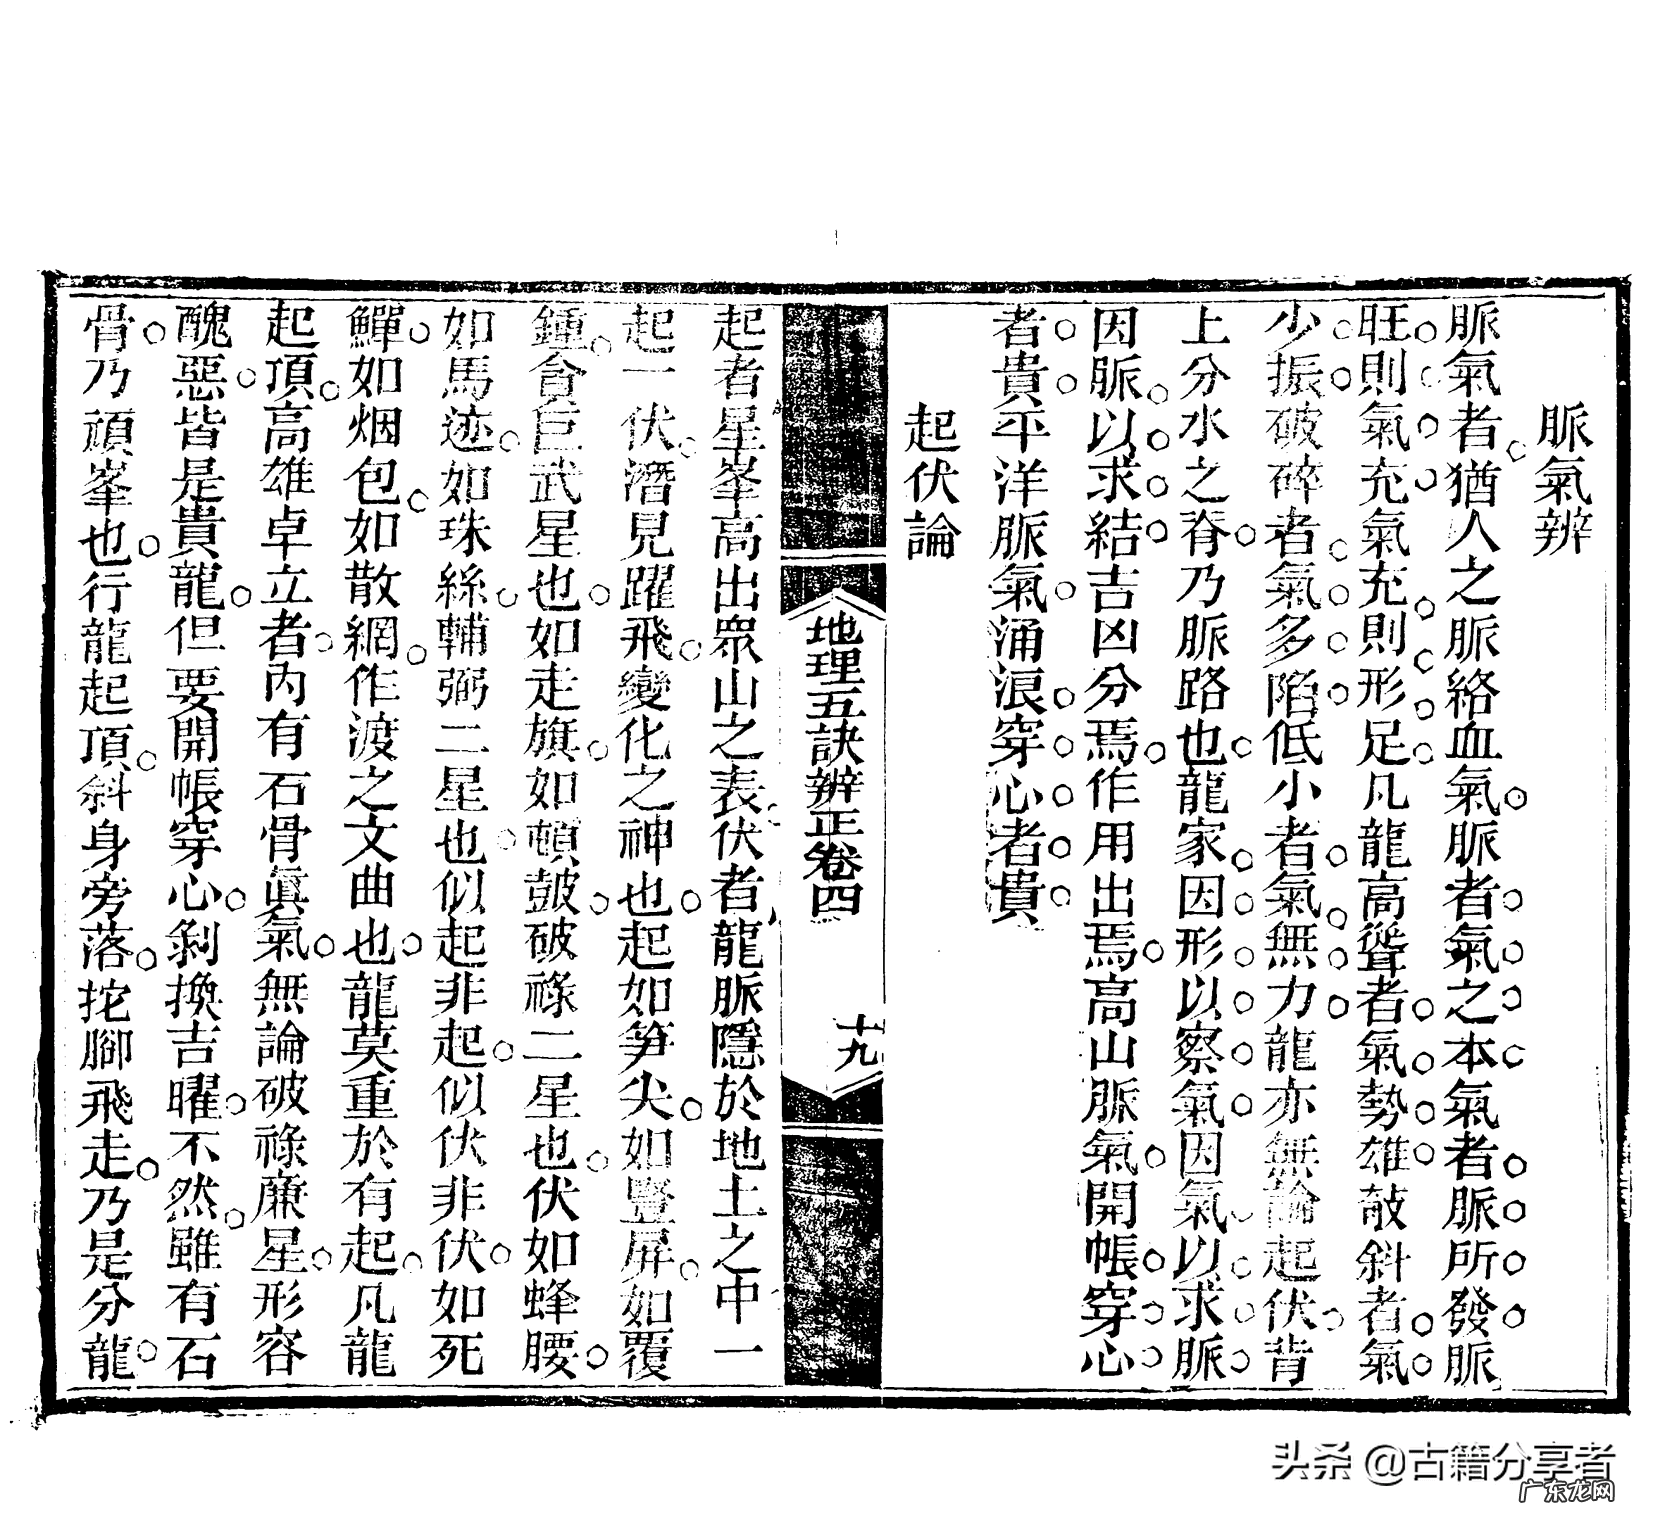 脈氣辨
脈氣者猶人之脈絡血氣脈者氣之本氣者脈所發脈
旺則氣充氣充則形足凡龍高聳者氣勢雄敧斜者氣
少振破碎者氣多陷低小者氣無力龍亦無論起伏背
上分水之脊乃脈路也龍家因形以察氣因氣以求脈
因脈以求結吉凶分焉作用出焉高山脈氣開帳穿心
者貴平洋脈氣涌浪穿心者貴
起伏論
地理五訣辨正卷四
十九
起者星峯高出眾山之表伏者龍脈隱於地土之中一
起一伏潛見躍飛變化之神也起如笋尖如豎屏如覆
鍾貪巨武星也如走旗如頓鼓破祿二星也伏如蜂腰
如馬迹如珠絲輔弼二星也似起非起似伏非伏如死
鱓如烟包如散網作渡之文曲也龍莫重於有起凡龍
起頂高雄卓立者內有石骨眞氣無論破祿廉星形容
醜惡皆是貴龍但要開帳穿心剝換吉曜不然雖有石
骨乃頑峯也行龍起頂斜身旁落拕腳飛走乃是分龍
头条 @古籍分享者
广东龙网